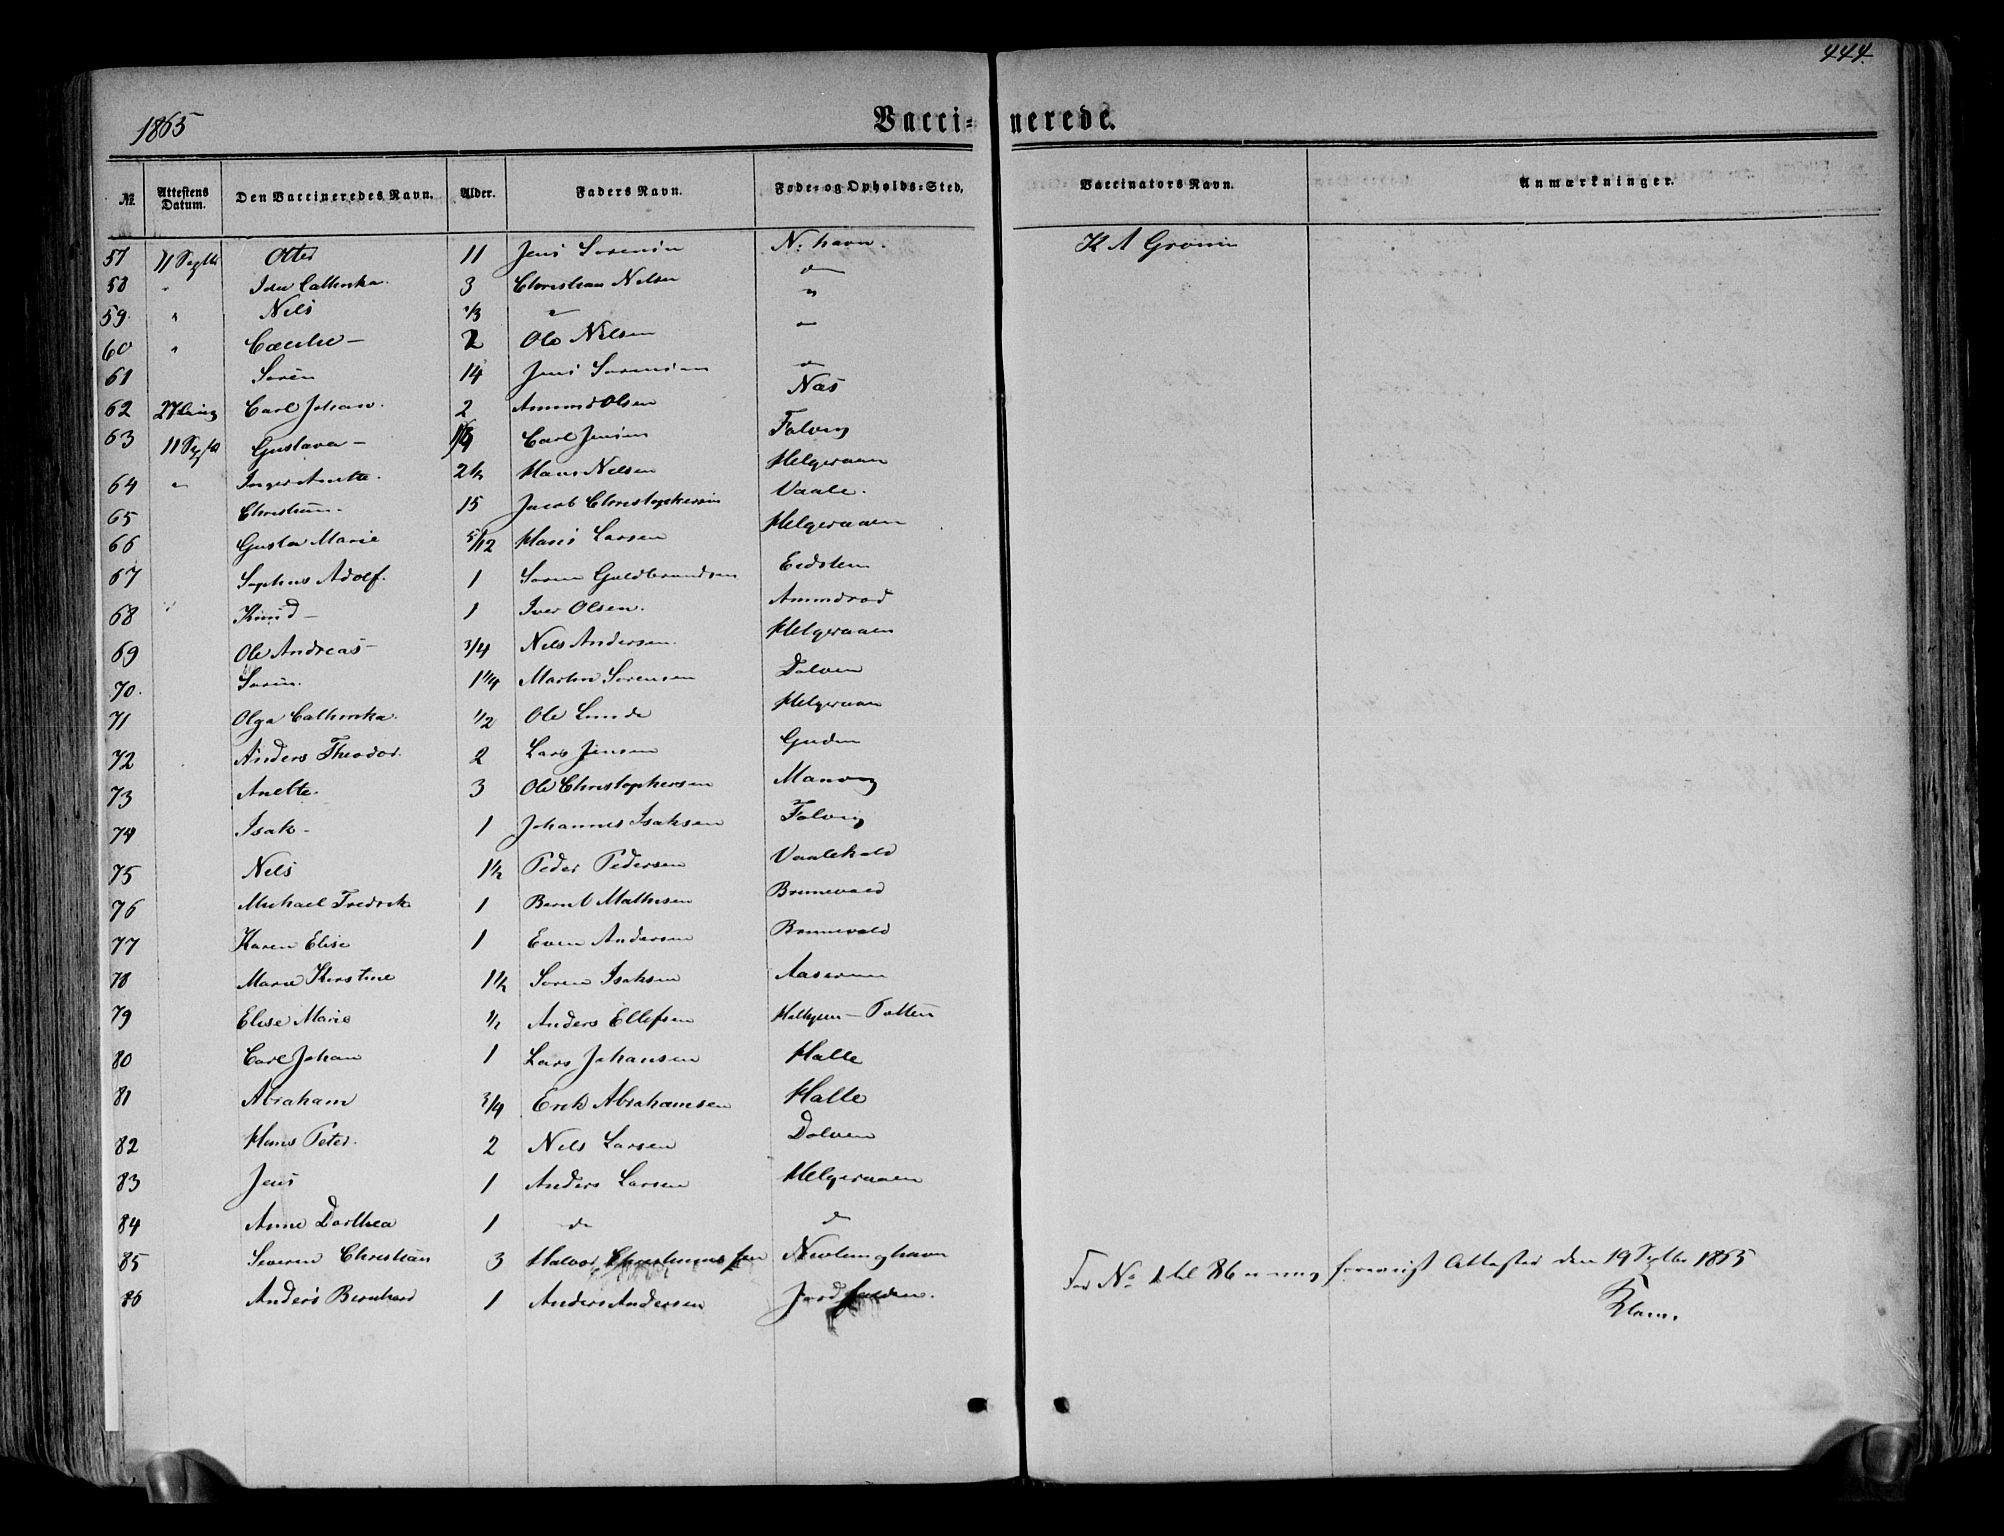 444.
1865
Vacci- nerede.
№ Attestens Datum. Den Vaccineredes Navn. Alder. Faders Navn. Føde- og Opholds-Sted. Vaccinators Navn. Anmærkninger.
57 11 Septbr Otter 11 Jens Sorensen N: havn. K A Grønn
58 " Ida Cathinka. 3 Christian Nilsen do
59. " Nils 1/3 " "
60 " Cæcilie - 2 Ole Nilsen "
61 Soren 14 Jens Sorensen do
62 27 Carl Johan. 2 Ammund Olsen Næs
63 11 Septbr Gustava - Carl Jensen Folvig
64 " Inger Anette. 2 1/2 Hans Nilsen Helgeraaen
65 Christian. 15 Jacob Christophersen Vaale.
66 Gusta Marie 5/12 Hans Larsen Helgeraaen
67 Sophus Adolf. 1 Soren Guldbrandsen Eidsten
68 Knud - 1 Iver Olsen. Ammdrod
69 Ole Andreas - 3/4 Nils Andersen. Helgeraaen
70. Soren. 1 1/4 Martin Sorensen Dolven
71 Olga Cathinka. 1/2 Ole Lunde Helgeraaen
72 Anders Theodor. 2 Lars Jensen Guden
73 Anette. 3 Ole Christophersen Manvig
74 Isak - 1 Johannes Isaksen Folvig
75 Nils 1 1/2 Peder Pedersen Vaalekald
76 Michael Fredrik 1 Bernt Mathisen Brunevald
77 Karen Elise 1 Even Andersen Brunevald
78 Marie Kirstine 1 1/2 Soren Isaksen Aaserum
79 Elise Marie 1/2 Anders Ellefsen - Totten
80 Carl Johan 1 Lars Johansen Halle
81 Abraham 3/4 Erik Abrahamsen Halle
82 Hans Peter. 2 Nils Larsen Dolven
83 Jens 1 Anders Larsen Helgeraaen
84 Anne Dorthea 1 do do
85 Severin Christian 3 Halvor Christiansen Nevlunghavn
86 Anders Bernhard 1 Anders Andersen Jordfalden.
For No 1 til 86 er mig forevist Attester den 19 Septbr 1865
Klem.